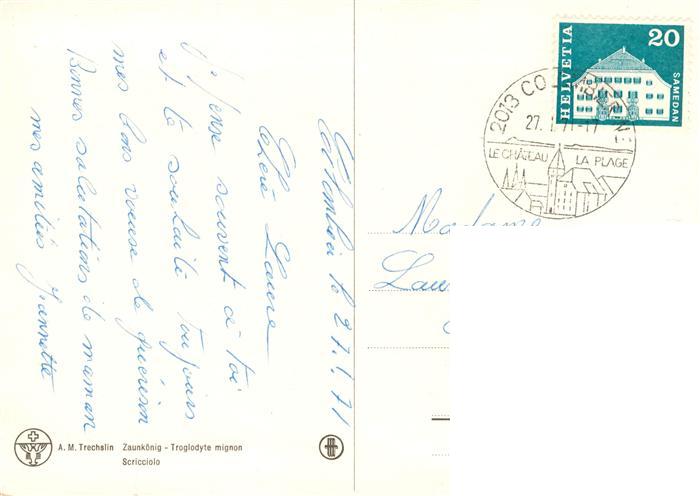 Colombier le 27.1.71
Chère Laure
Je pense souvent à toi
et te souhaite toujours
mes bons voeux de guérison
Bonnes salutations de maman
mes amitiés Jeannette
A. M. Trechslin Zaunkönig - Troglodyte mignon
Scricciolo
HELVETIA
20
SAMEDAN
2013 CO
27. 1. 71-17
LE CHÂTEAU LA PLAGE
Madame